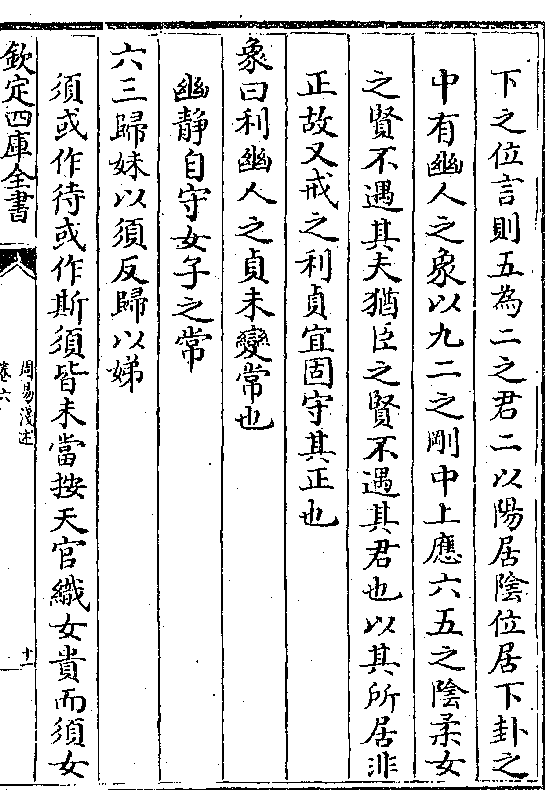 下之位言則五為二之君二以陽居陰位居下卦之
中有幽人之象以九二之剛中上應六五之陰柔女
之賢不遇其夫猶臣之賢不遇其君也以其所居非
正故又戒之利貞宜固守其正也
象曰利幽人之貞未變常也
幽靜自守女子之常
六三歸妹以須反歸以娣
須或作待或作斯須皆未當按天官織女貴而須女
欽定四庫全書
周易淺述
卷六
十一